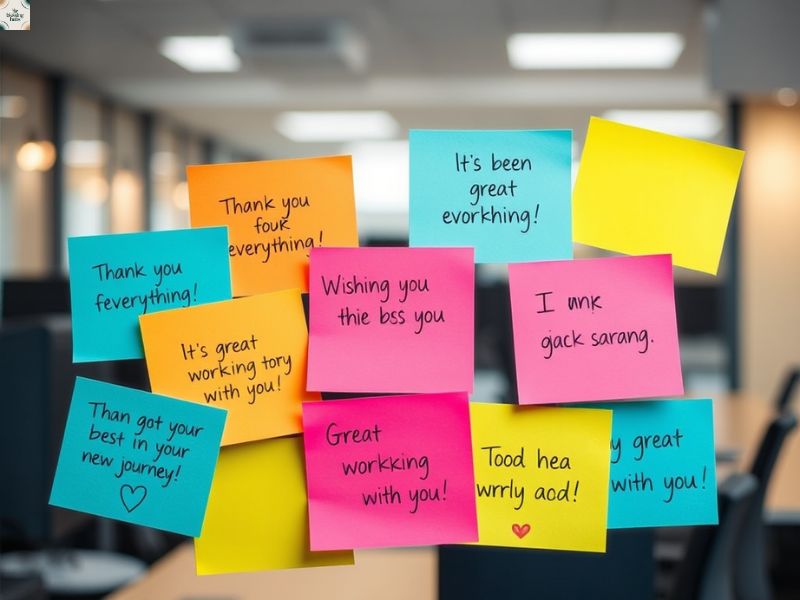 Thank you
fouk
everything!
It's been
great
evorkhing!
Thank you
feverything!
Wishing you
thie bss you
I
gjack sarang.
It's great
working tory
with you!
Than got your
best in your
new journey!
Great
workking
with you!
Tood hea
wrrly aod!
y great
with you!